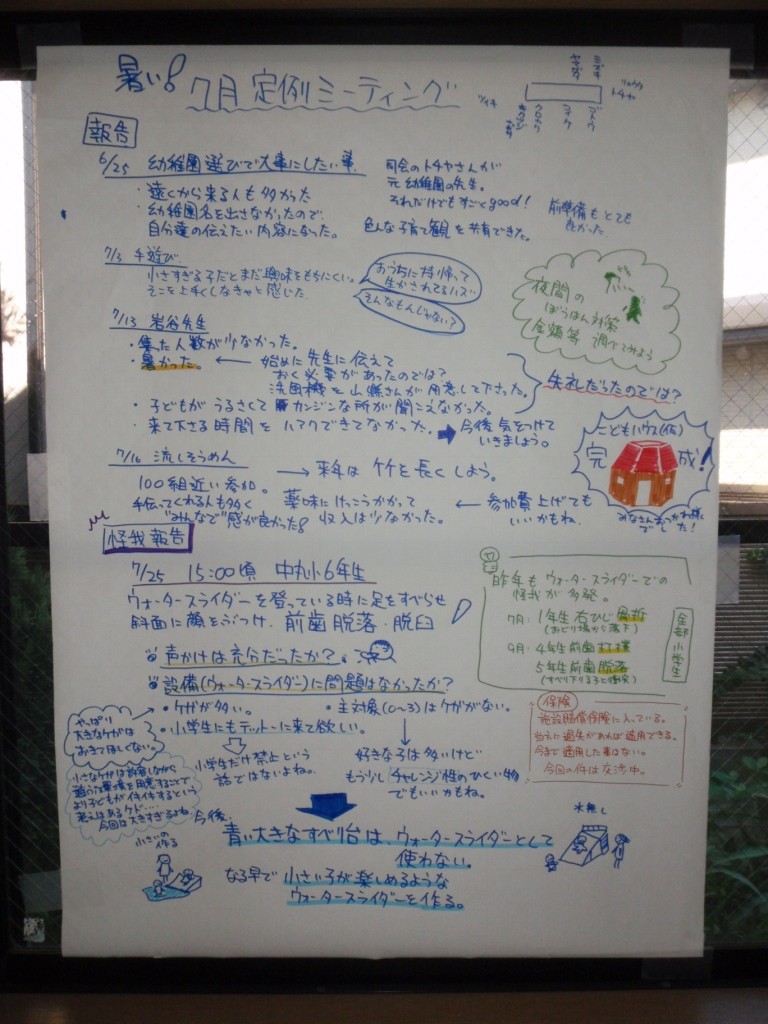 暑い!
7月 定例ミーティング
報告
6/25 幼稚園選びで大事にしたい事
・遠くから来る人も多かった
・幼稚園名を出さなかったので、
自分達の伝えたい内容になった。
司会のトチヤさんが
元幼稚園の先生。
それだけでもすごくgood!
色んな子育て観を共有できた。
前準備もとても
良かった
7/3 手遊び
小さすぎる子だとまだ興味をもちにくい。
そこを上手くしなきゃと感じた。
おうちに持ち帰って
生かされてるハズ
そんなもんじゃない?
夜間の
ぼうはん対策
金額等 調べてみよう
7/13 岩谷先生
・集った人数が少なかった。
・暑かった ← 始めに先生に伝えて
おく必要があったのでは?
洗風機を山縣さんが用意して下さった。
・子どもがうるさくてカンジンな所が聞こえなかった。
・来て下さる時間をハアクできてなかった。
失礼だったのでは?
今後気をつけて
いきましょう。
こどもハウス(仮)
完成!
みなさんおつかれ様
でした!
7/16 流しそうめん → 来年は竹を長くしよう。
100組近い参加。
手伝ってくれる人も多く
"みんなで"感が良かった!
薬味にけっこうかかって
収入は少なかった。
← 参加費上げても
いいかもね。
怪我報告
7/25 15:00頃 中丸小6年生
ウォータースライダーを登っている時に足をすべらせ
斜面に顔をぶつけ、前歯脱落・脱臼
声かけは充分だったか?
設備(ウォータースライダー)に問題はなかったか?
・ケガが多い。
・主対象(0~3)はケガがない。
・小学生にもテットーに来て欲しい。
小学生だけ禁止という
話ではないよね。
好きな子は多いけど
もう少しチャレンジ性のひくい物
でもいいかもね。
昨年もウォータースライダーでの
怪我が多発。
7月:1年生右ひじ骨折
(おどり場から落下)
9月:4年生前歯打撲
5年生前歯脱落
(すべり下りる子と衝突)
全部小学生
保険
施設賠償保険に入っている。
当方に過失があれば適用できる。
今まで適用した事はない。
今回の件は交渉中。
やっぱり
大きなケガは
おきてほしくない。
今後、
青い大きなすべり台は、ウォータースライダーとして
使わない。
なる早で 小さい子が楽しめるような
ウォータースライダーを作る。
小さいの
作る
水無し